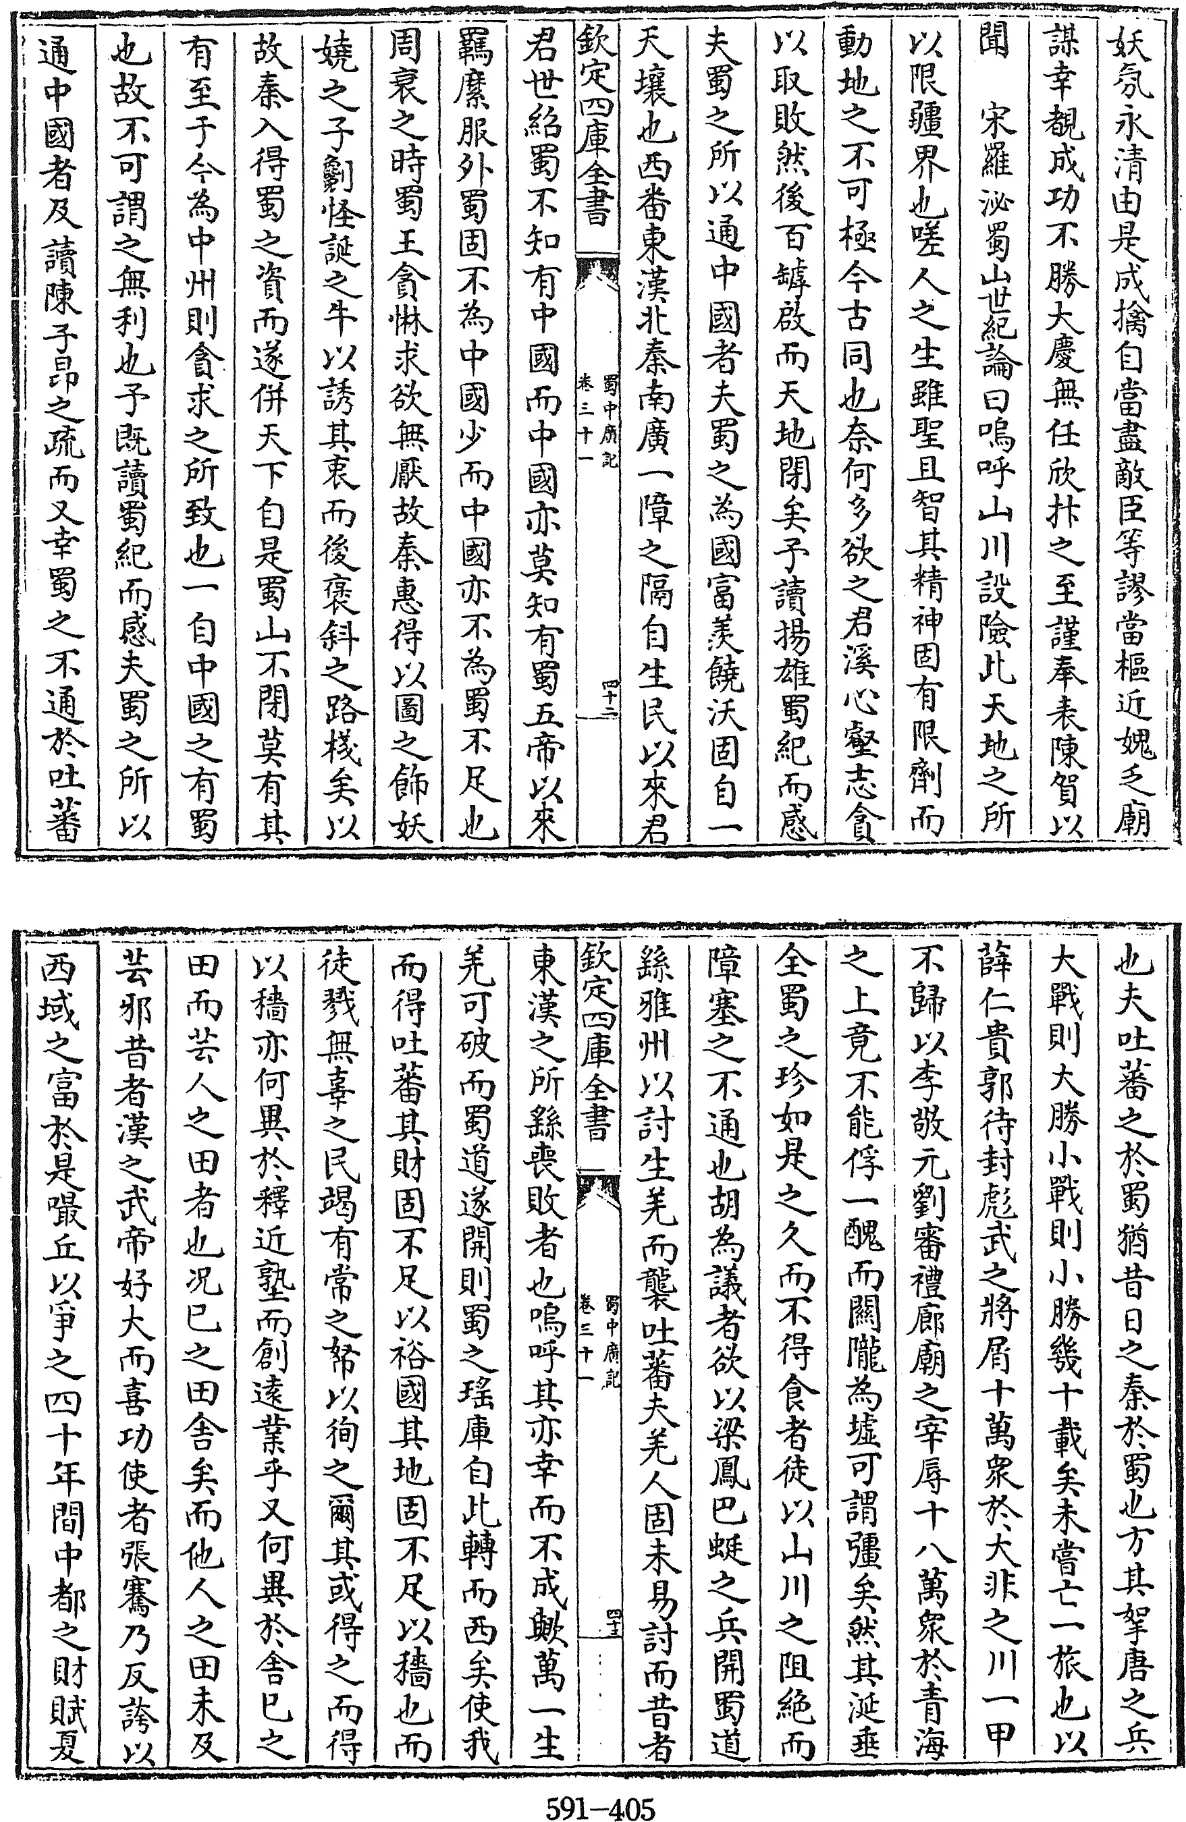 妖氛永清由是成擒自當盡敵臣等謬當樞近媿乏廟
謀幸覩成功不勝大慶無任欣抃之至謹奉表陳賀以
聞　宋羅泌蜀山世紀論曰嗚呼山川設險此天地之所
以限疆界也嗟人之生雖聖且智其精神固有限劑而
動地之不可極今古同也奈何多欲之君溪心壑志貪
以取敗然後百罅啟而天地閉矣予讀揚雄蜀紀而感
夫蜀之所以通中國者夫蜀之為國富羨饒沃固自一
天壤也西番東漢北秦南廣一障之隔自生民以來君
欽定四庫全書
蜀中廣記
卷三十一
四十二
君世紹蜀不知有中國而中國亦莫知有蜀五帝以來
羈縻服外蜀固不為中國少而中國亦不為蜀不足也
周衰之時蜀王貪惏求欲無厭故秦惠得以圖之飾妖
嬈之子劙怪誕之牛以誘其衷而後褒斜之路棧矣以
故秦入得蜀之資而遂併天下自是蜀山不閉莫有其
有至于今為中州則貪求之所致也一自中國之有蜀
也故不可謂之無利也予既讀蜀紀而感夫蜀之所以
通中國者及讀陳子昂之疏而又幸蜀之不通於吐蕃
也夫吐蕃之於蜀猶昔日之秦於蜀也方其挐唐之兵
大戰則大勝小戰則小勝幾十載矣未嘗亡一旅也以
薛仁貴郭待封彪武之將屑十萬衆於大非之川一甲
不歸以李敬元劉審禮廊廟之宰辱十八萬衆於青海
之上竟不能俘一醜而關隴為墟可謂彊矣然其涎垂
全蜀之珍如是之久而不得食者徒以山川之阻絶而
障塞之不通也胡為議者欲以梁鳳巴蜒之兵開蜀道
繇雅州以討生羌而襲吐蕃夫羌人固未易討而昔者
欽定四庫全書
蜀中廣記
卷三十一
四十三
東漢之所繇喪敗者也嗚呼其亦幸而不成歟萬一生
羌可破而蜀道遂開則蜀之瑤庫自此轉而西矣使我
而得吐蕃其財固不足以裕國其地固不足以穡也而
徒戮無辜之民竭有常之帑以徇之爾其或得之而得
以穡亦何異於釋近塾而創遠業乎又何異於舍已之
田而芸人之田者也况已之田舍矣而他人之田未及
芸邪昔者漢之武帝好大而喜功使者張騫乃反誇以
西域之富於是嘬丘以爭之四十年間中都之財賦夏
591-405